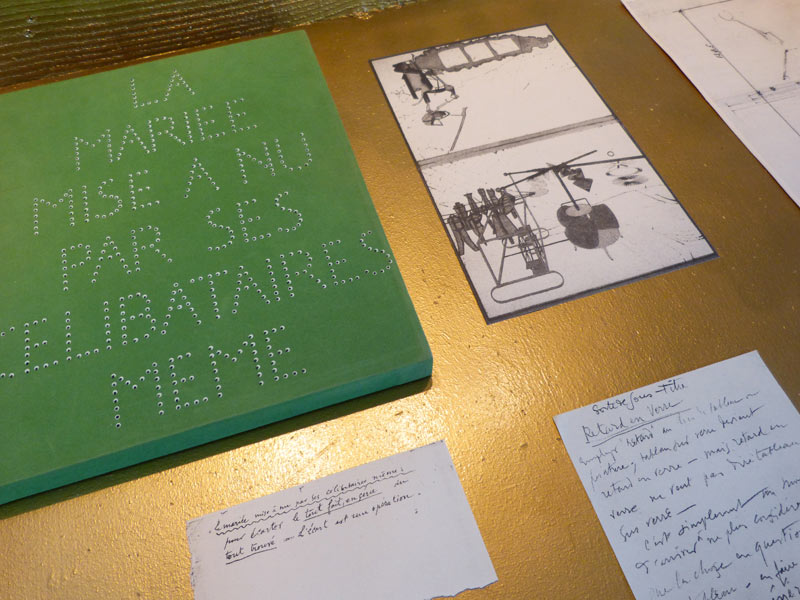 LA
MARIEE
MISE A NU
PAR SES
CELIBATAIRES
MEME
La mariée mise à nu par les célibataires même:
pour écarter le tout fait, en série du
tout trouvé — L'écart est une opération.
Sorte de Sous-Titre
Retard en Verre
employer "retard" au lieu de tableau ou
peinture; tableau sur verre devient
retard en verre — mais retard en
verre ne veut pas dire tableau
sur verre —
C'est simplement un
d'arriver à ne plus considérer
que la chose en question